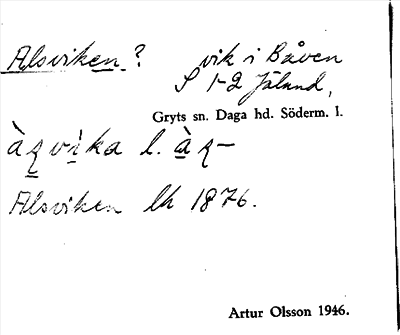 Alsviken ? vik i Båven
S 1-2 Jälund,
Gryts sn. Daga hd. Söderm. l.
l.
Alsviken lk 1876.
Artur Olsson 1946.